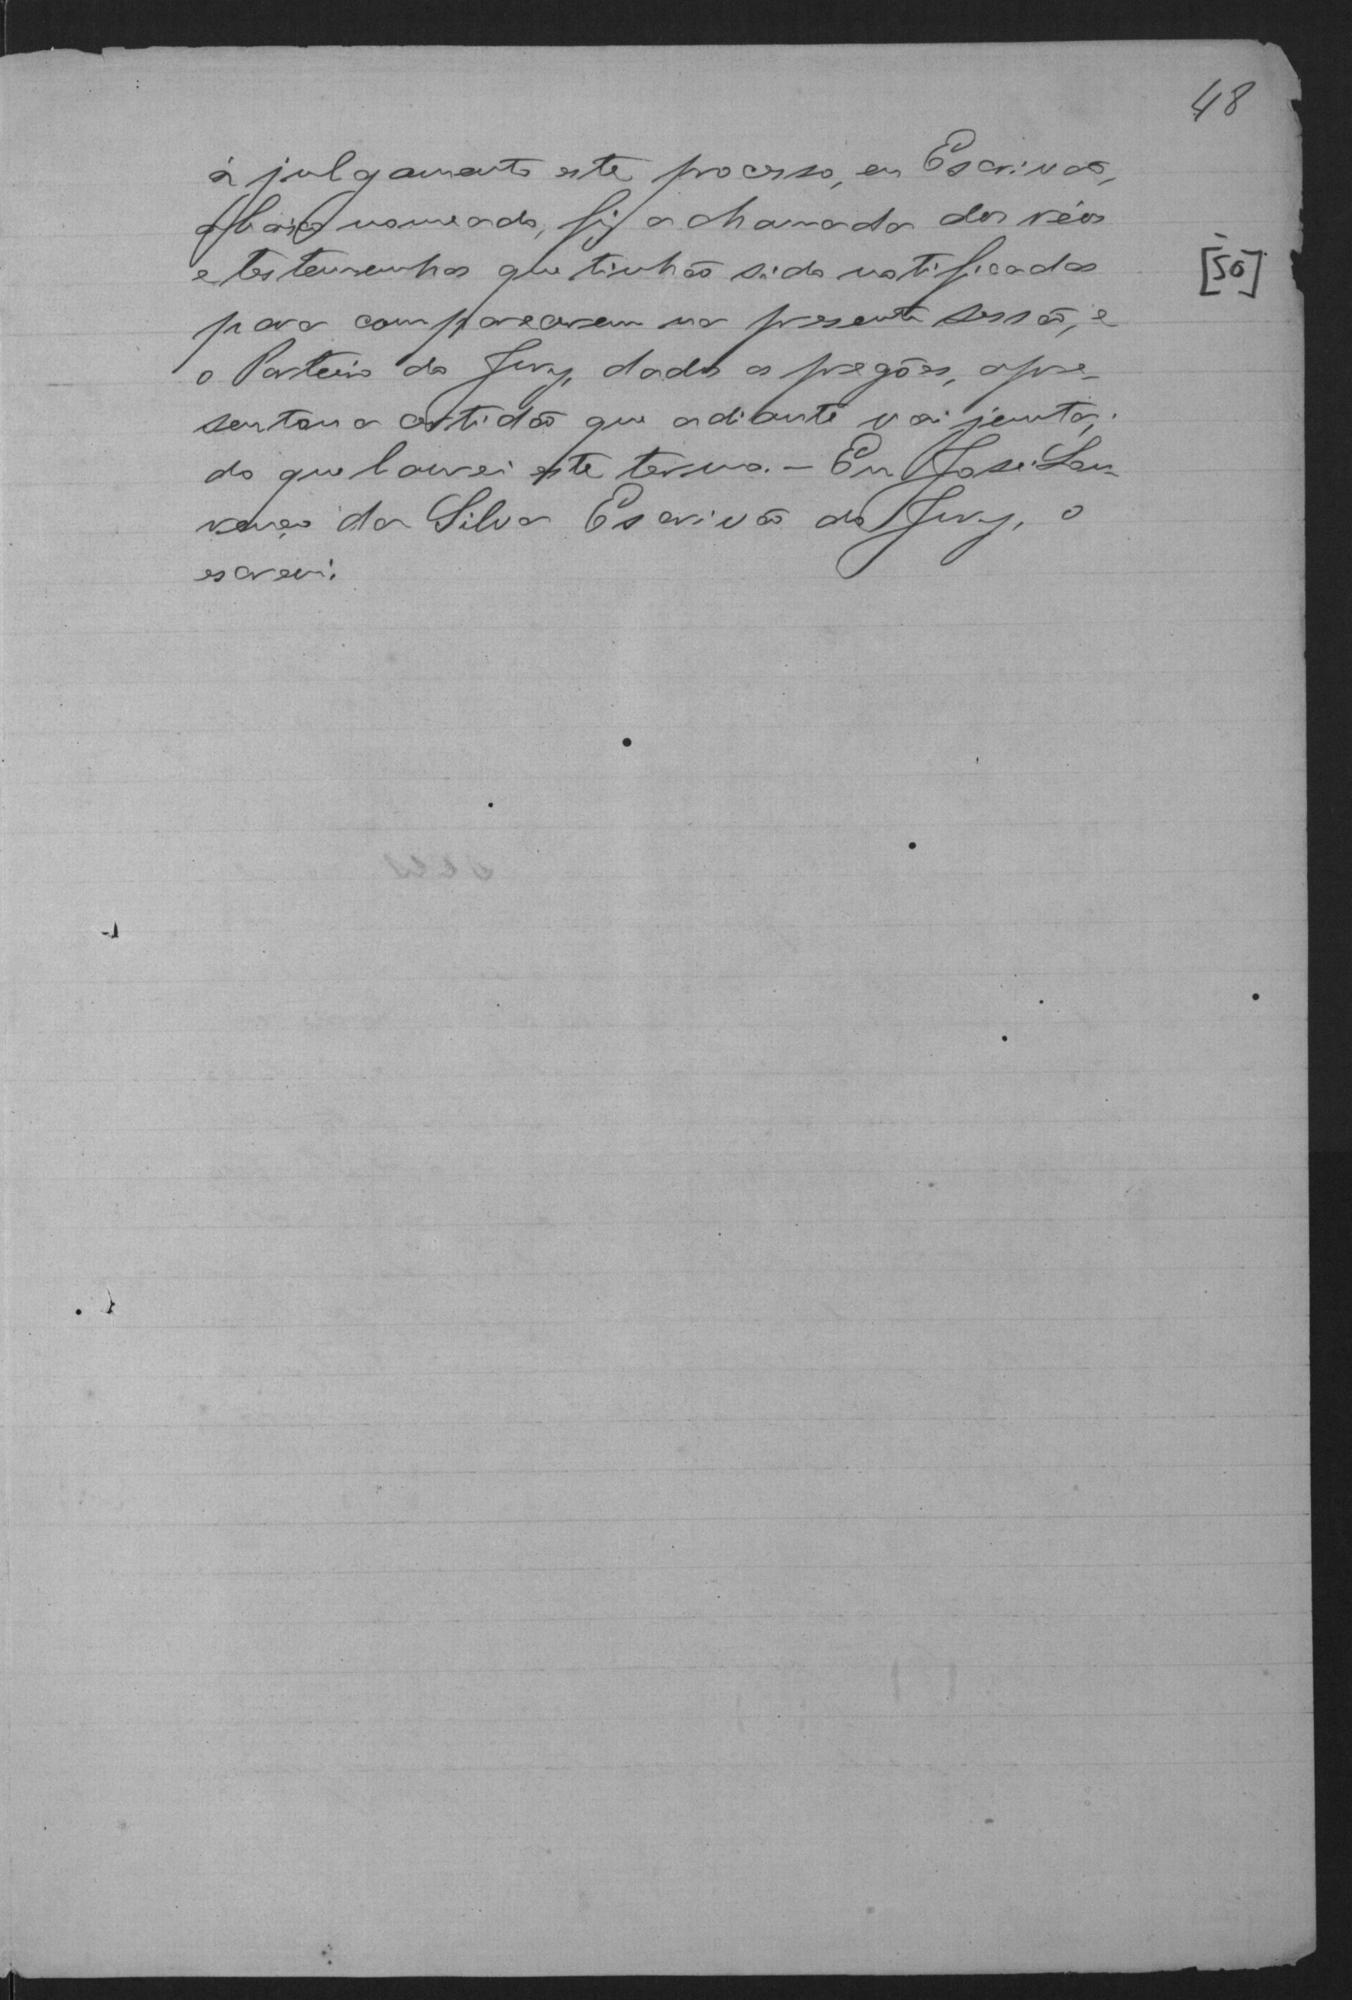 48
à julgamento este processo, eu Escrivão,
abaixo nomeado, fiz a chamada dos réos
[50]
e testemunhas que tinhão sido notificadas
para comparecerem na presente sessão, e
o Porteiro do Jury, dados os pregões, apre-
sentou a certidão que adiante vai junta;
do que lavrei este termo. – Eu José Lou-
renço da Silva Escrivão do Jury, o
escrevi.